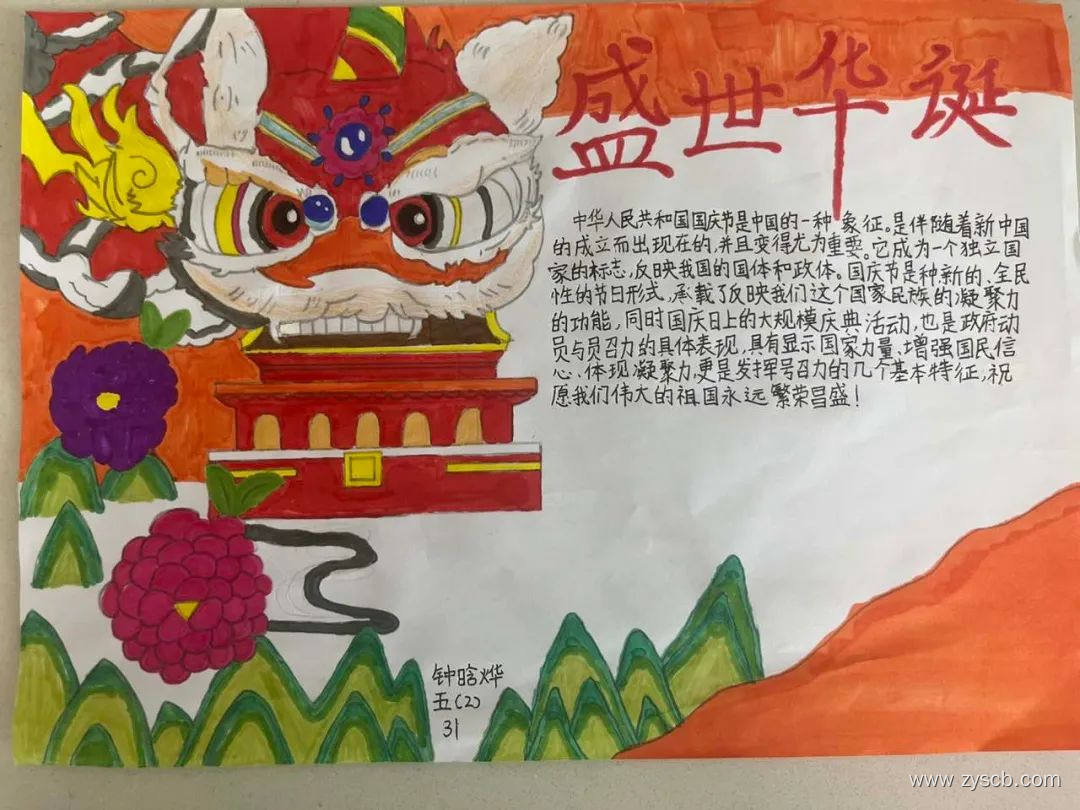 盛世华诞
中华人民共和国国庆节是中国的一种象征。是伴随着新中国
的成立而出现在的,并且变得尤为重要。它成为一个独立国
家的标志,反映我国的国体和政体。国庆节是种新的、全民
性的节日形式,承载了反映我们这个国家民族的凝聚力
的功能,同时国庆日上的大规模庆典活动,也是政府动
员与员召力的具体表现,具有显示国家力量、增强国民信
心、体现凝聚力,更是发挥号召力的几个基本特征,祝
愿我们伟大的祖国永远繁荣昌盛!
钟晗烨
五(2)
31
www.zyscb.com